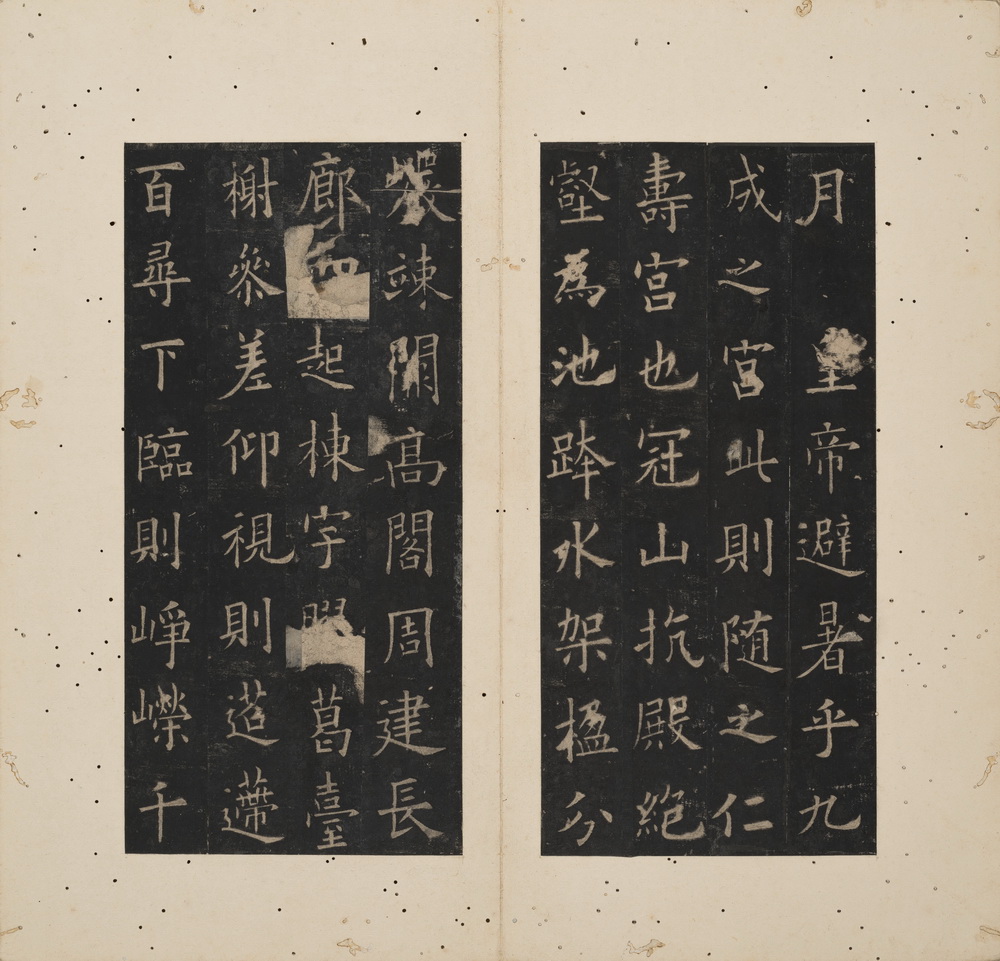 月　皇帝避暑乎九
成之宮此則随之仁
壽宮也冠山抗殿絕
壑爲池跨水架楹分
巖竦闕高閣周建長
廊四起棟宇葛臺
榭參差仰視則迢遰
百尋下臨則崢嶸千